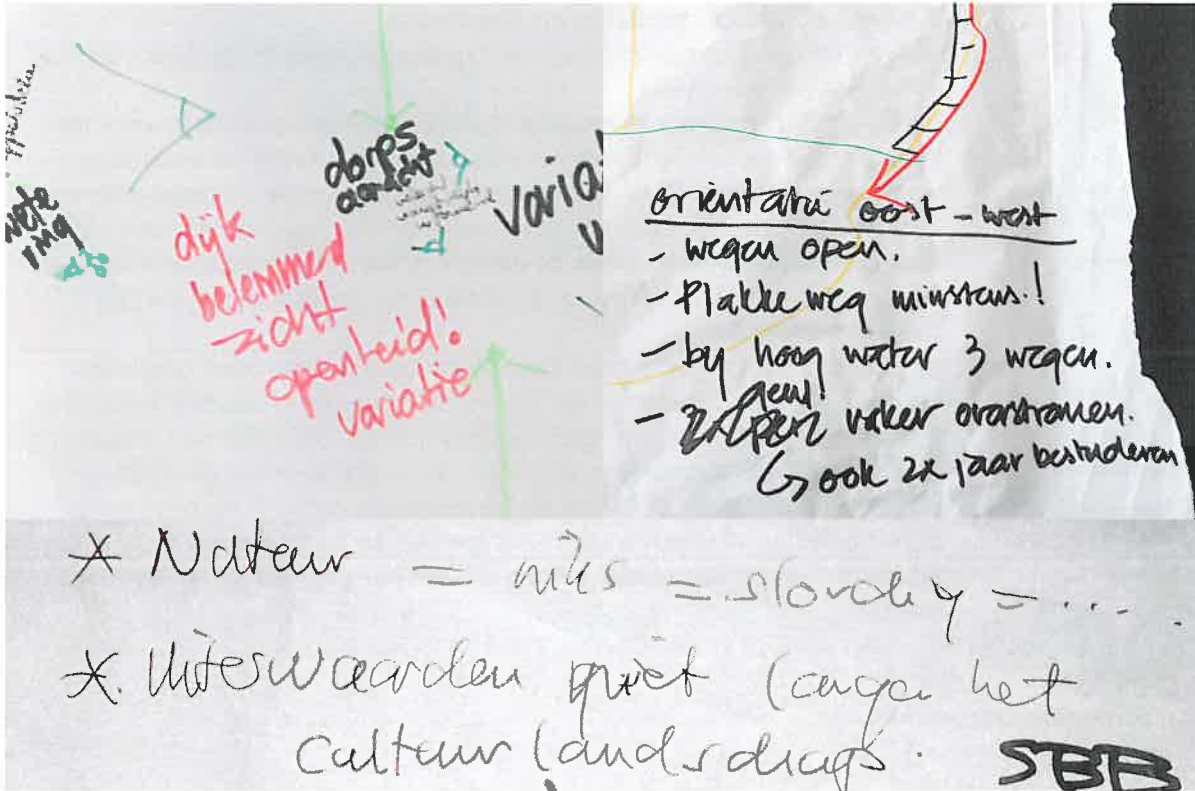 wete
ring
dorps
aanzicht
dijk
belemmerd
zicht
openheid!
variatie
varia
orientatie oost - west
- wegen open.
- Plakkeweg minstens!
- by hoog water 3 wegen.
geul!
- vaker overstromen.
ook 2x jaar bestuderen
* Natuur = niks = slordig = ....
* Uiterwaarden niet langer het
Cultuurlandschap.
SBB